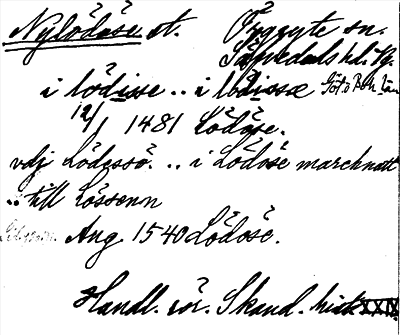 Nylödöse st. Örgryte sn.
Sävedals hd. Vg.
i lödisse .. i lödissæ Göt. o Boh. län
12/1 1481 Lödöse.
vdj Lödessö. .. i Lödöse marchnatt
.. till Lössenn
Aug 1540 Lödöse.
Handl. rör. Skand. hist. XXIX